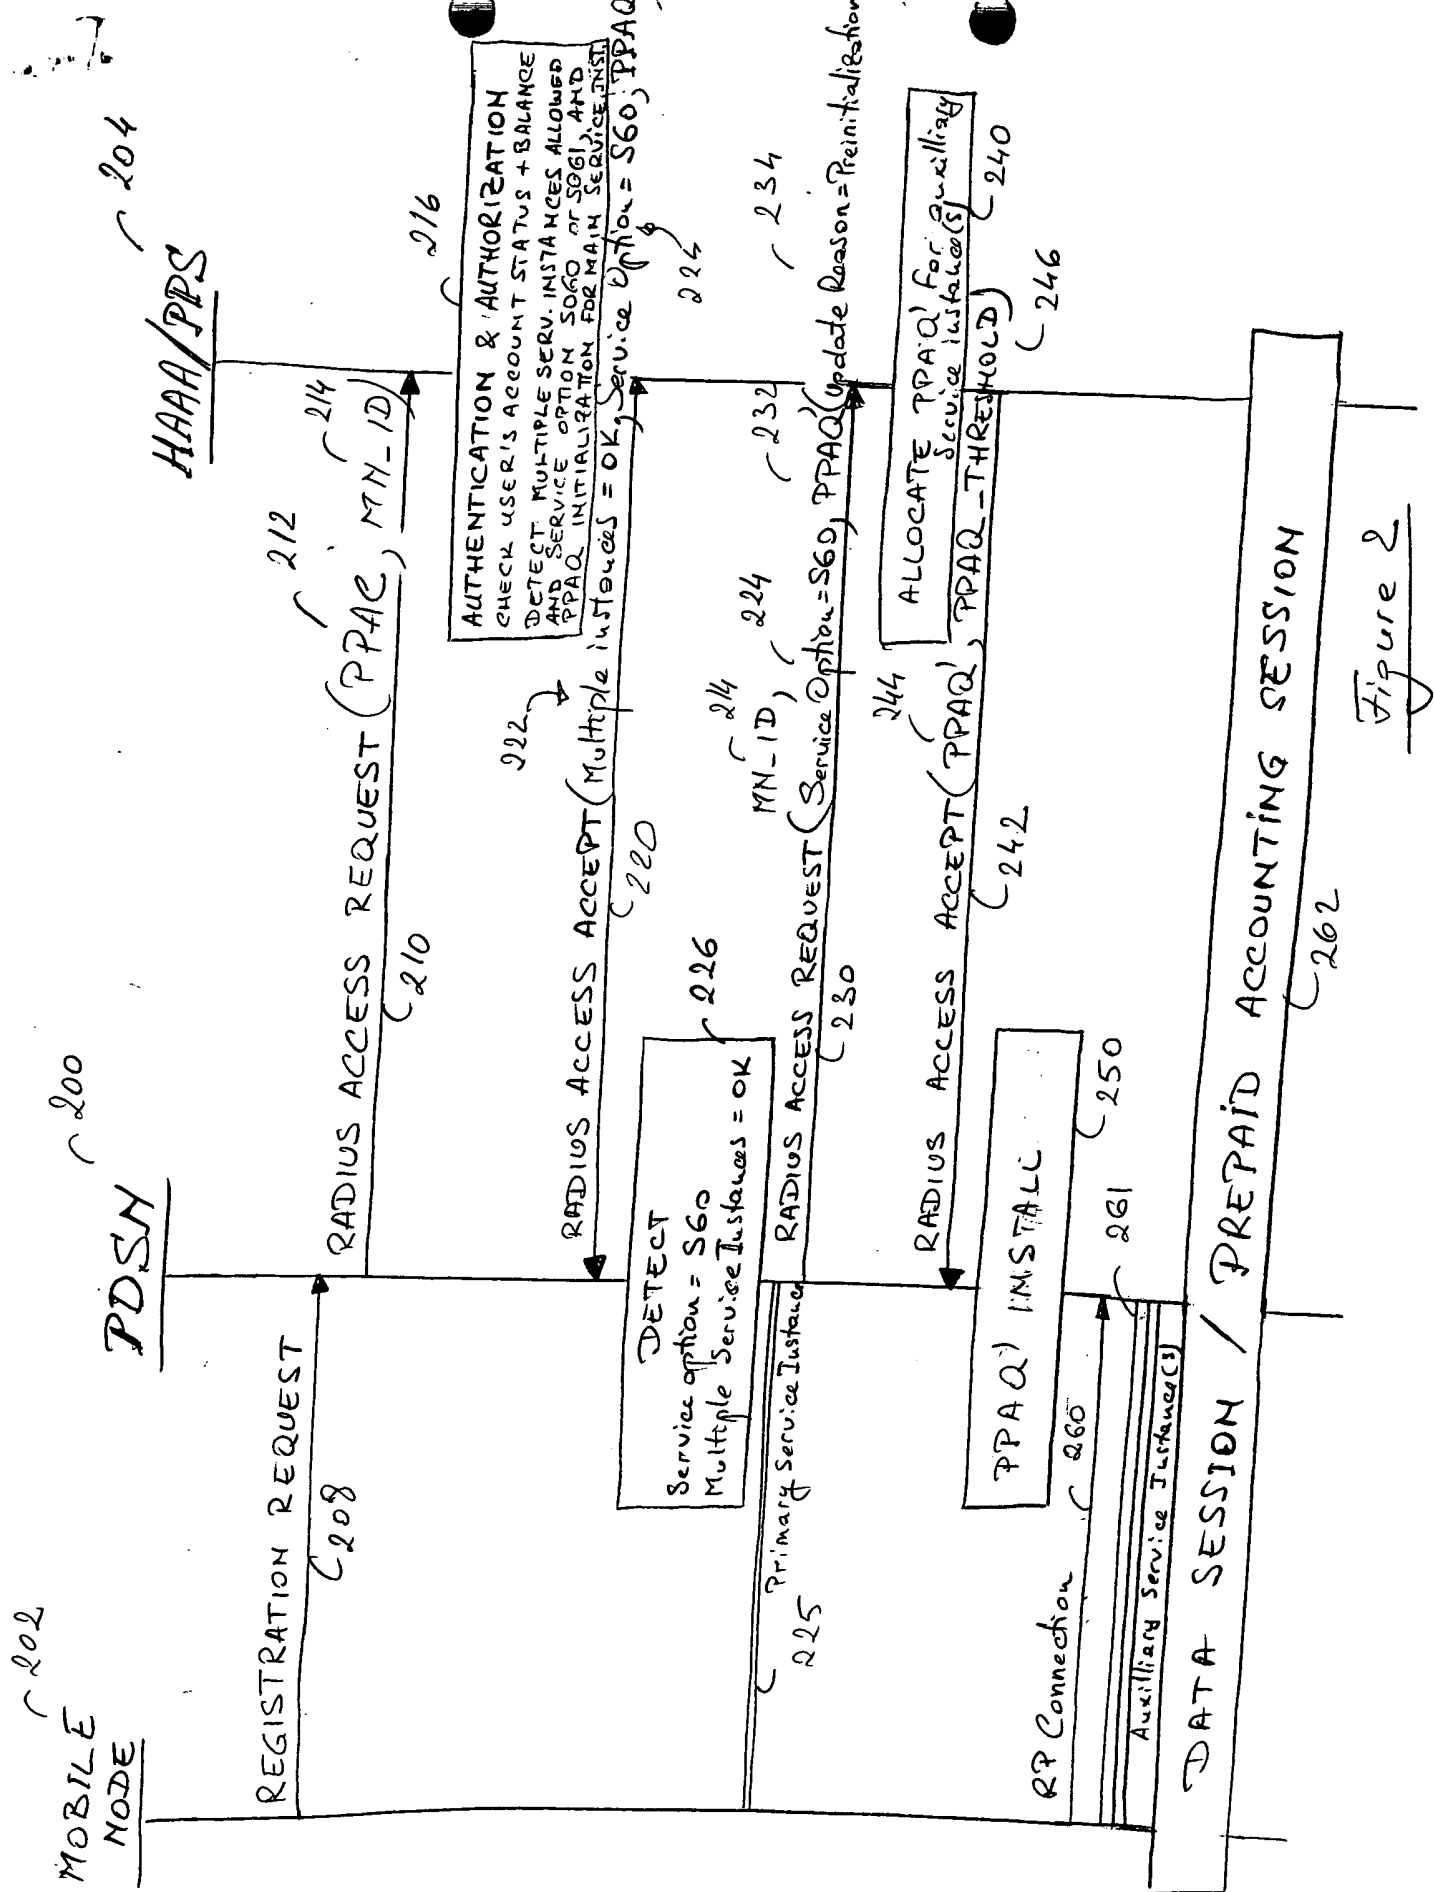 MOBILE
NODE
202
PDSN
200
HAAA/PPS
204
REGISTRATION REQUEST
208
RADIUS ACCESS REQUEST (PPAC, MN_ID)
210
212
214
216
AUTHENTICATION & AUTHORIZATION
CHECK USER'S ACCOUNT STATUS + BALANCE
DETECT MULTIPLE SERV. INSTANCES ALLOWED
AND SERVICE OPTION SO60 or SO61, AND
PPAQ INITIALIZATION FOR MAIN SERVICE INST.
222
RADIUS ACCESS ACCEPT (Multiple instances = OK, Service Option = S60, PPAQ
220
224
DETECT
Service option = S60
Multiple Service Instances = OK
226
Primary Service Instance
225
MN_ID,
214
224
232
234
RADIUS ACCESS REQUEST (Service Option=S60, PPAQ (Update Reason=Preinitialization
230
ALLOCATE PPAQ' for auxilliary
Service instance(s)
240
244
246
RADIUS ACCESS ACCEPT (PPAQ', PPAQ_THRESHOLD)
242
PPAQ' INSTALL
250
RP Connection
260
261
Auxilliary Service Instance(s)
DATA SESSION / PREPAID ACCOUNTING SESSION
262
Figure 2